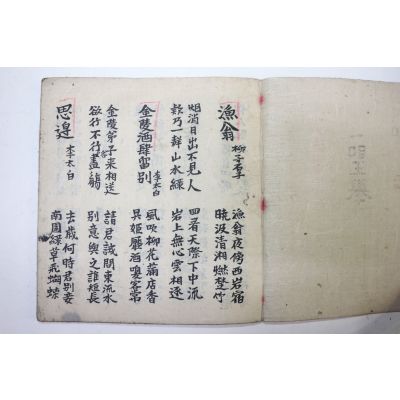 漁翁
柳子厚
漁翁夜傍西岩宿
曉汲清湘燃楚竹
烟消日出不見人
欵乃一聲山水綠
回看天際下中流
岩上無心雲相逐
金陵酒肆留別
李太白
風吹柳花滿店香
吳姬壓酒喚客嘗
金陵弟子來相送
欲行不行各盡觴
請君試問東流水
別意與之誰短長
思邊
李太白
去歲何時君別妾
南園綠草飛蝴蝶